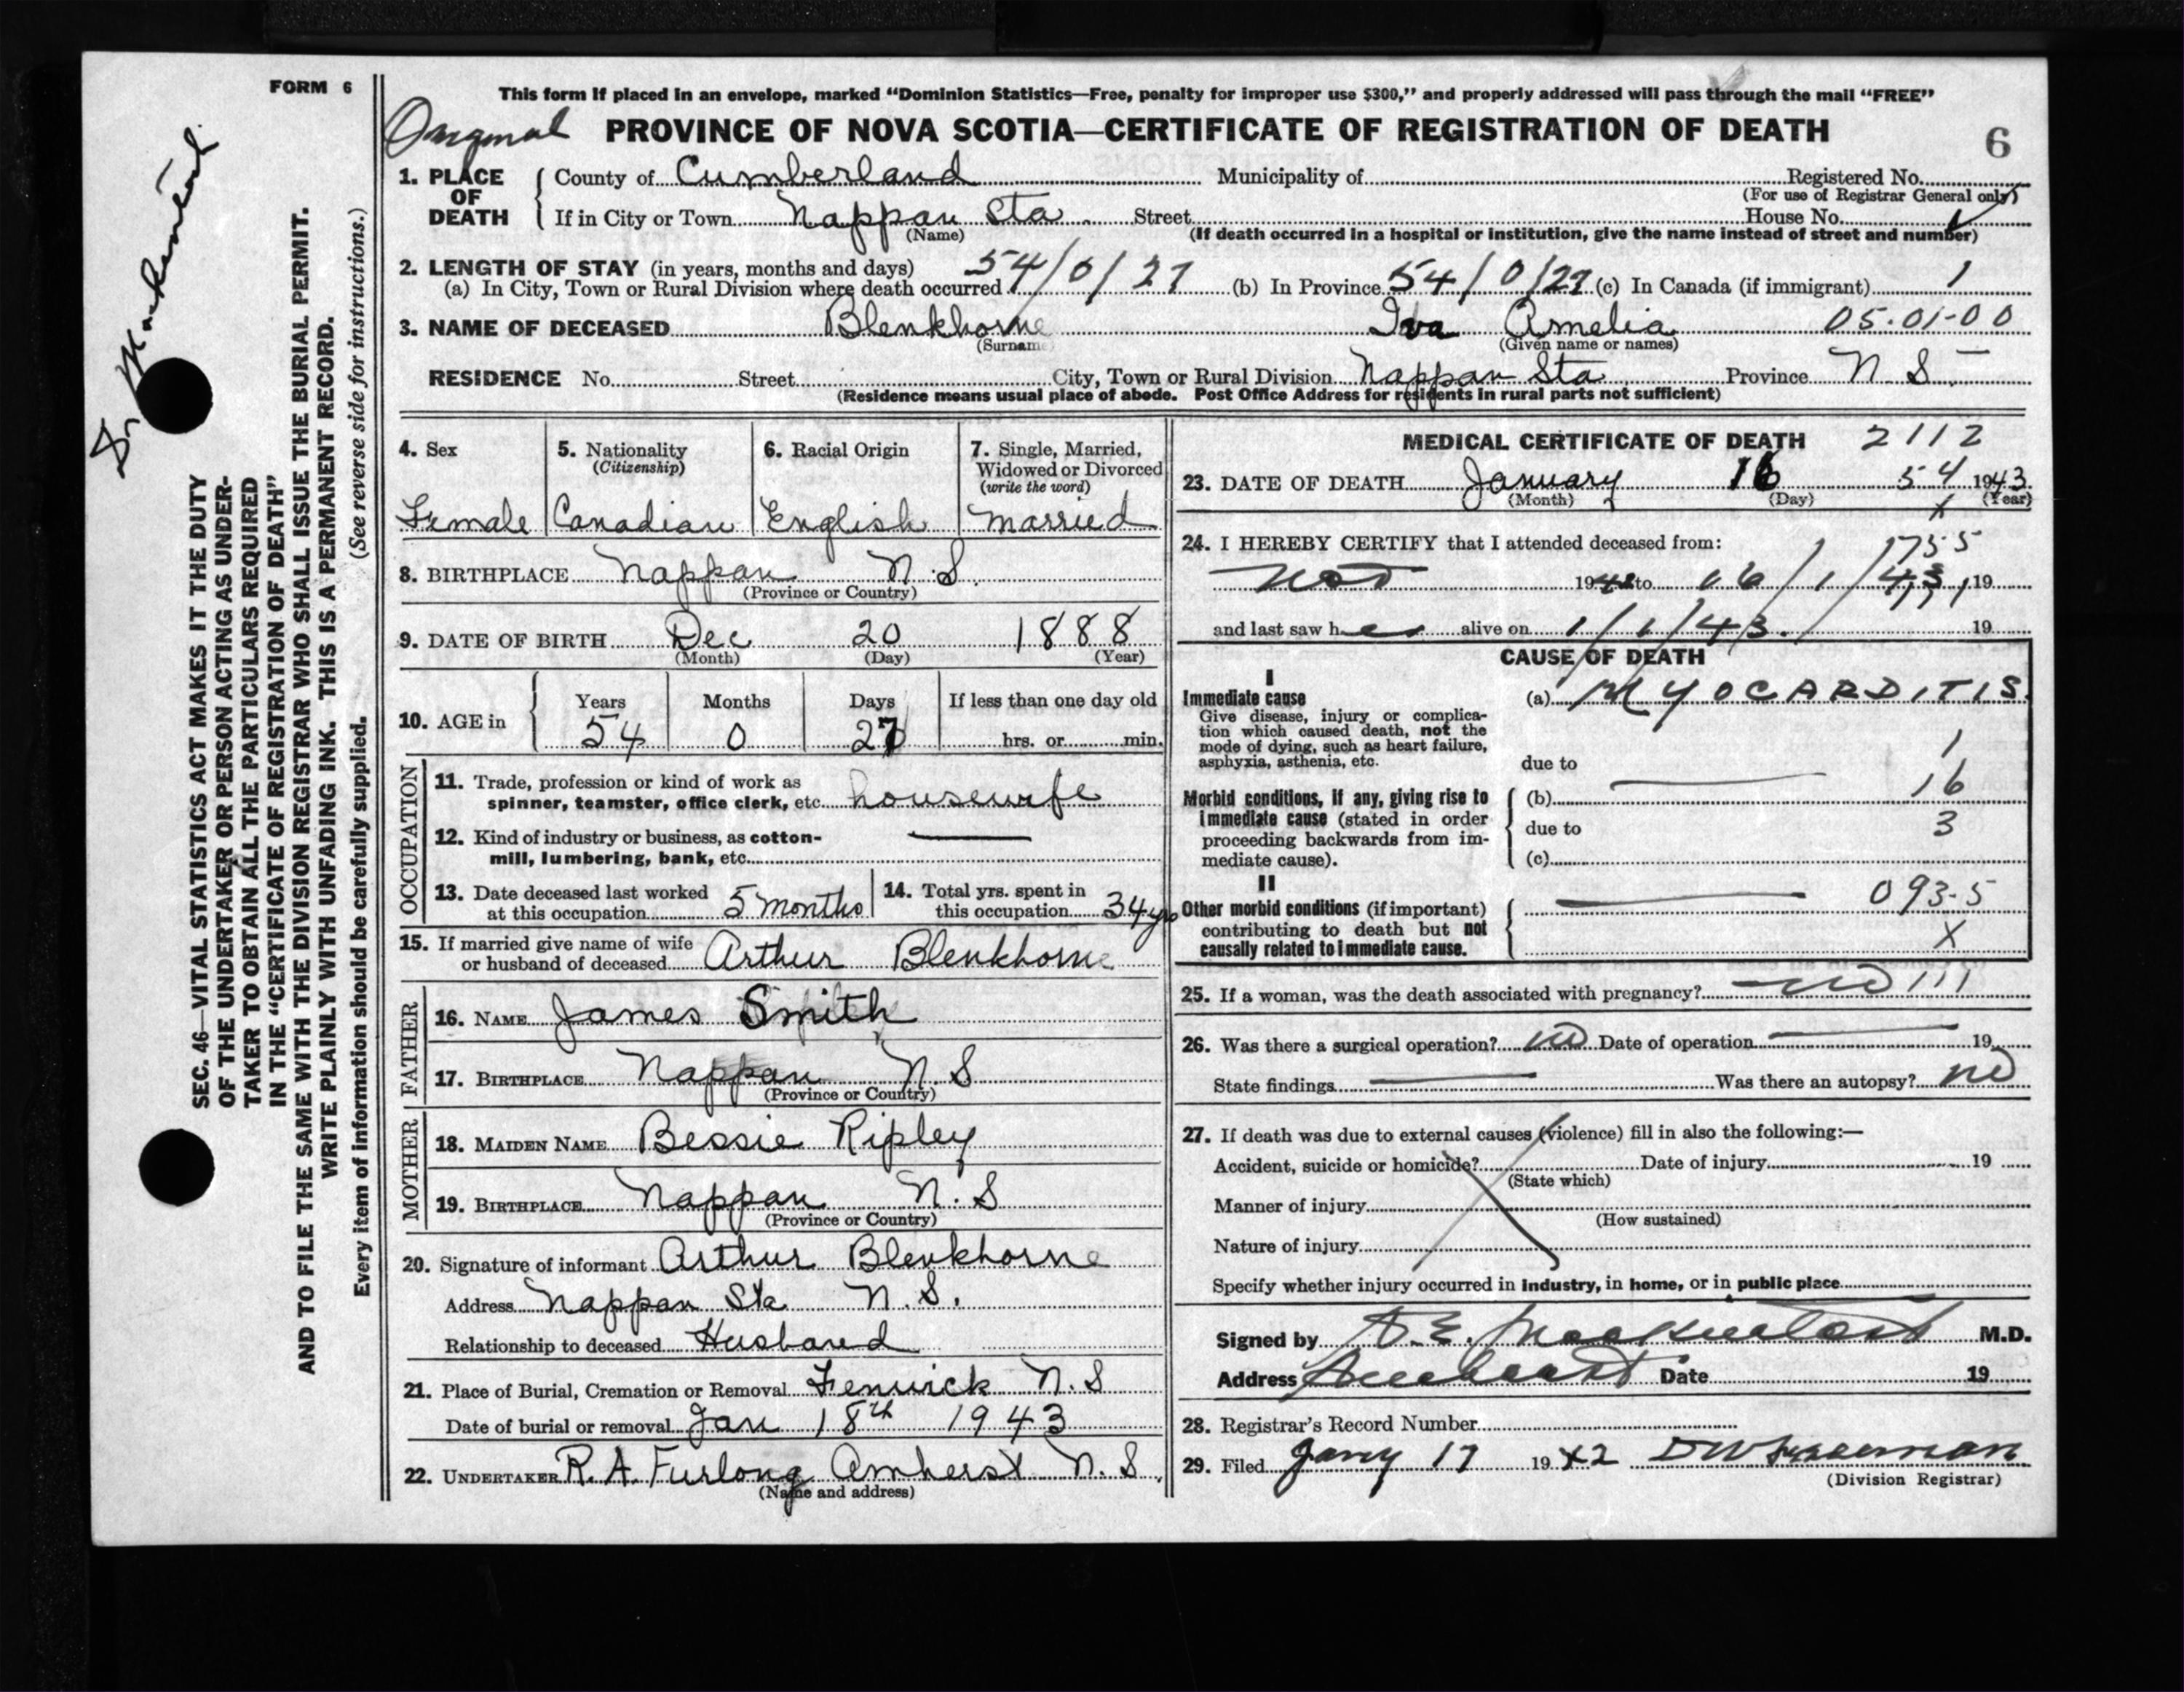 FORM 6
This form if placed in an envelope, marked “Dominion Statistics—Free, penalty for improper use $300,” and properly addressed will pass through the mail “FREE”
Original PROVINCE OF NOVA SCOTIA—CERTIFICATE OF REGISTRATION OF DEATH
6
1. PLACE OF DEATH
County of Cumberland Municipality of Registered No.
(For use of Registrar General only)
If in City or Town Nappan Sta Street House No.
(Name) (If death occurred in a hospital or institution, give the name instead of street and number)
2. LENGTH OF STAY (in years, months and days)
(a) In City, Town or Rural Division where death occurred 54/0/27 (b) In Province 54/0/27 (c) In Canada (if immigrant) 1
3. NAME OF DECEASED Blenkhorne Iva Amelia 05-01-00
(Surname) (Given name or names)
RESIDENCE No. Street City, Town or Rural Division Nappan Sta Province N. S.
(Residence means usual place of abode. Post Office Address for residents in rural parts not sufficient)
4. Sex 5. Nationality 6. Racial Origin 7. Single, Married,
(Citizenship) Widowed or Divorced
(write the word)
Female Canadian English Married
8. BIRTHPLACE Nappan N.S.
(Province or Country)
9. DATE OF BIRTH Dec 20 1888
(Month) (Day) (Year)
10. AGE in Years Months Days If less than one day old
54 0 27 hrs. or min.
OCCUPATION
11. Trade, profession or kind of work as
spinner, teamster, office clerk, etc. housewife
12. Kind of industry or business, as cotton-
mill, lumbering, bank, etc.
13. Date deceased last worked
at this occupation 5 months
14. Total yrs. spent in
this occupation 34 yrs
15. If married give name of wife
or husband of deceased Arthur Blenkhorne
FATHER
16. NAME James Smith
17. BIRTHPLACE Nappan N S
(Province or Country)
MOTHER
18. MAIDEN NAME Bessie Ripley
19. BIRTHPLACE Nappan N.S
(Province or Country)
20. Signature of informant Arthur Blenkhorne
Address Nappan Sta N.S.
Relationship to deceased Husband
21. Place of Burial, Cremation or Removal Fenwick N.S
Date of burial or removal Jan 18th 1943
22. UNDERTAKER R.A. Furlong Amherst N.S.
(Name and address)
MEDICAL CERTIFICATE OF DEATH 2112
23. DATE OF DEATH January 16 54 1943
(Month) (Day) (Year)
x
24. I HEREBY CERTIFY that I attended deceased from:
1755
1942 to 16/1/43, 19
and last saw her alive on 1/1/43. 19
CAUSE OF DEATH
I
Immediate cause (a) MYOCARDITIS.
Give disease, injury or complica-
tion which caused death, not the
mode of dying, such as heart failure,
asphyxia, asthenia, etc.
1
due to
Morbid conditions, if any, giving rise to (b) 16
immediate cause (stated in order due to 3
proceeding backwards from im-
mediate cause). (c)
II
Other morbid conditions (if important) 093-5
contributing to death but not
causally related to immediate cause. X
25. If a woman, was the death associated with pregnancy? no 111
26. Was there a surgical operation? no Date of operation 19
State findings Was there an autopsy? no
27. If death was due to external causes (violence) fill in also the following:—
Accident, suicide or homicide? Date of injury 19
(State which)
Manner of injury
(How sustained)
Nature of injury
Specify whether injury occurred in industry, in home, or in public place
Signed by A. E. Mackintosh M.D.
Address Amherst Date 19
28. Registrar's Record Number
29. Filed Jany 17 1942
(Division Registrar)
Dr Mackintosh
SEC. 46—VITAL STATISTICS ACT MAKES IT THE DUTY
OF THE UNDERTAKER OR PERSON ACTING AS UNDER-
TAKER TO OBTAIN ALL THE PARTICULARS REQUIRED
IN THE “CERTIFICATE OF REGISTRATION OF DEATH”
AND TO FILE THE SAME WITH THE DIVISION REGISTRAR WHO SHALL ISSUE THE BURIAL PERMIT.
WRITE PLAINLY WITH UNFADING INK. THIS IS A PERMANENT RECORD.
Every item of information should be carefully supplied. (See reverse side for instructions.)